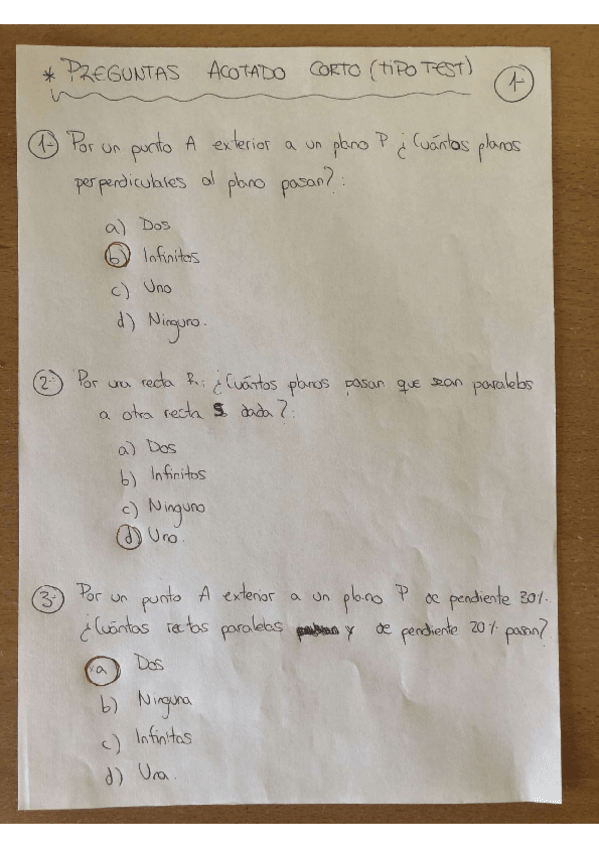 * PREGUNTAS ACOTADO CORTO (TIPO TEST) 1-
1- Por un punto A exterior a un plano P ¿Cuántos planos
perpendiculares al plano pasan?:
a) Dos
b) Infinitos
c) Uno
d) Ninguno.
2- Por una recta R: ¿Cuántos planos pasan que sean paralelos
a otra recta S dada?:
a) Dos
b) Infinitos
c) Ninguno
d) Uno.
3- Por un punto A exterior a un plano P de pendiente 30%.
¿Cuántas rectas paralelas y de pendiente 20% pasan?
a Dos
b) Ninguna
c) Infinitas
d) Una.